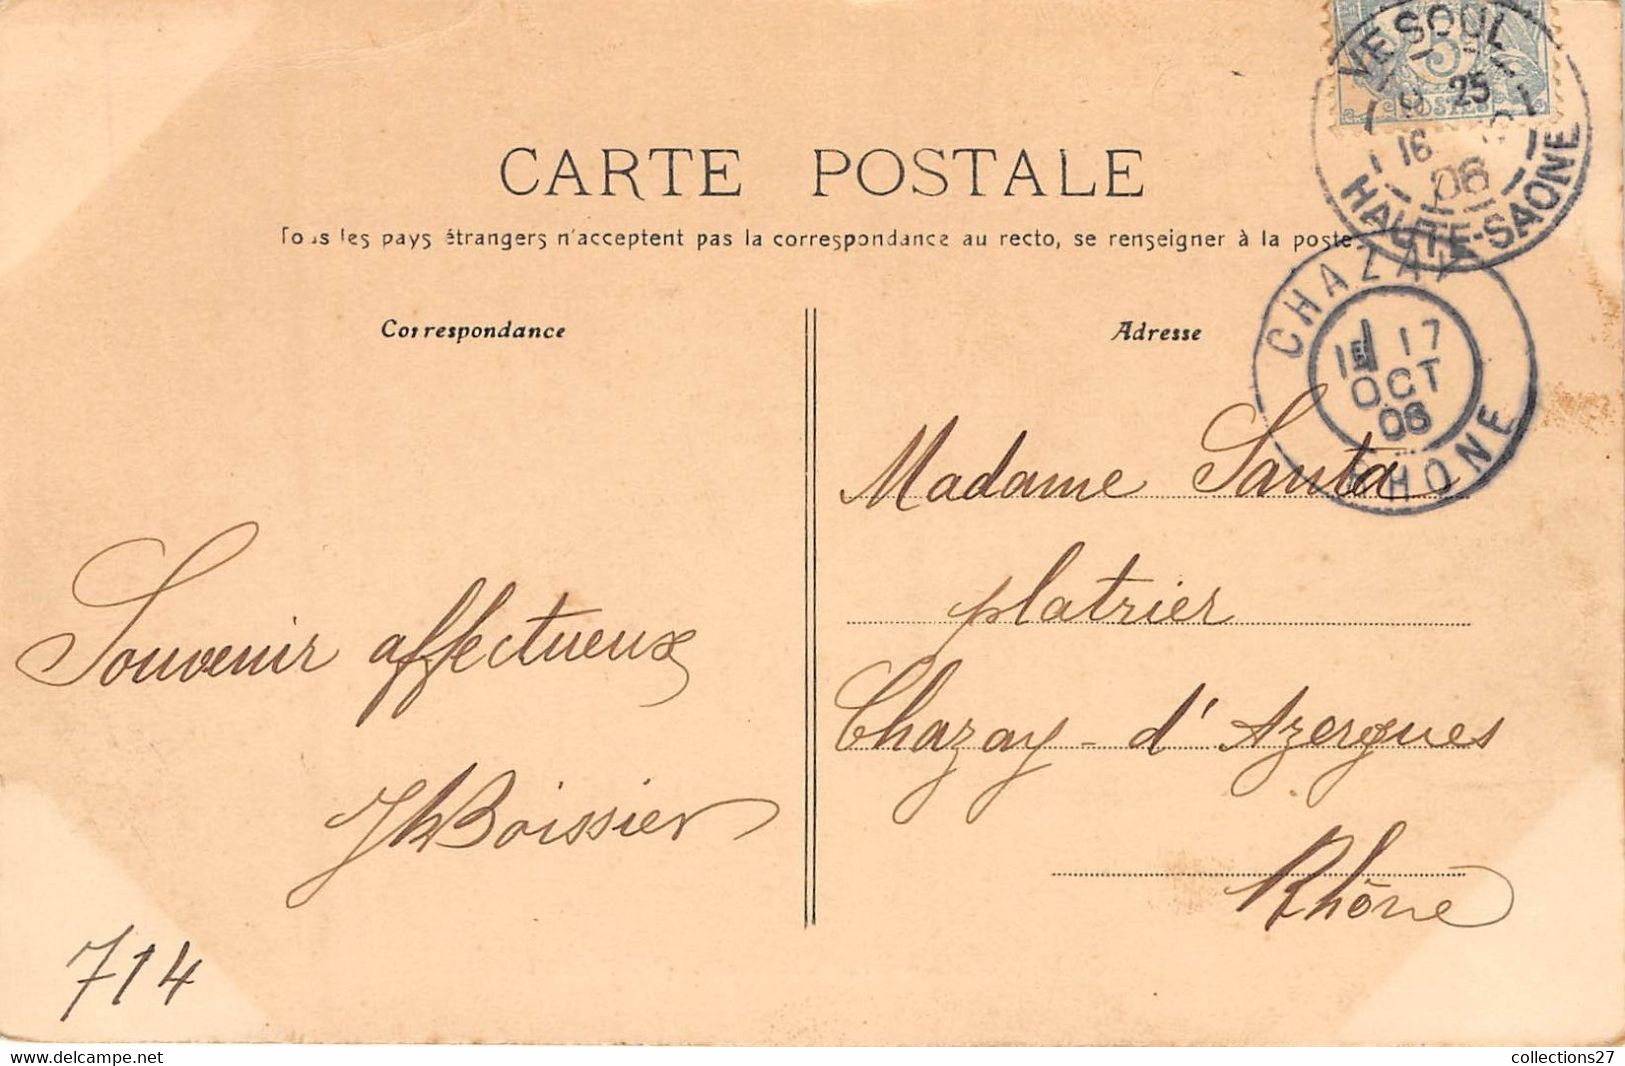 CARTE POSTALE
Tous les pays étrangers n'acceptent pas la correspondance au recto, se renseigner à la poste
Correspondance
Adresse
5
POSTES
VESOUL
25
16
06
HAUTE-SAONE
CHAZAY
17
OCT
06
RHONE
Souvenir affectueux
Boissier
714
Madame Santa
platrier
Chazay-d'Azergues
Rhône
delcampe.net
collections27